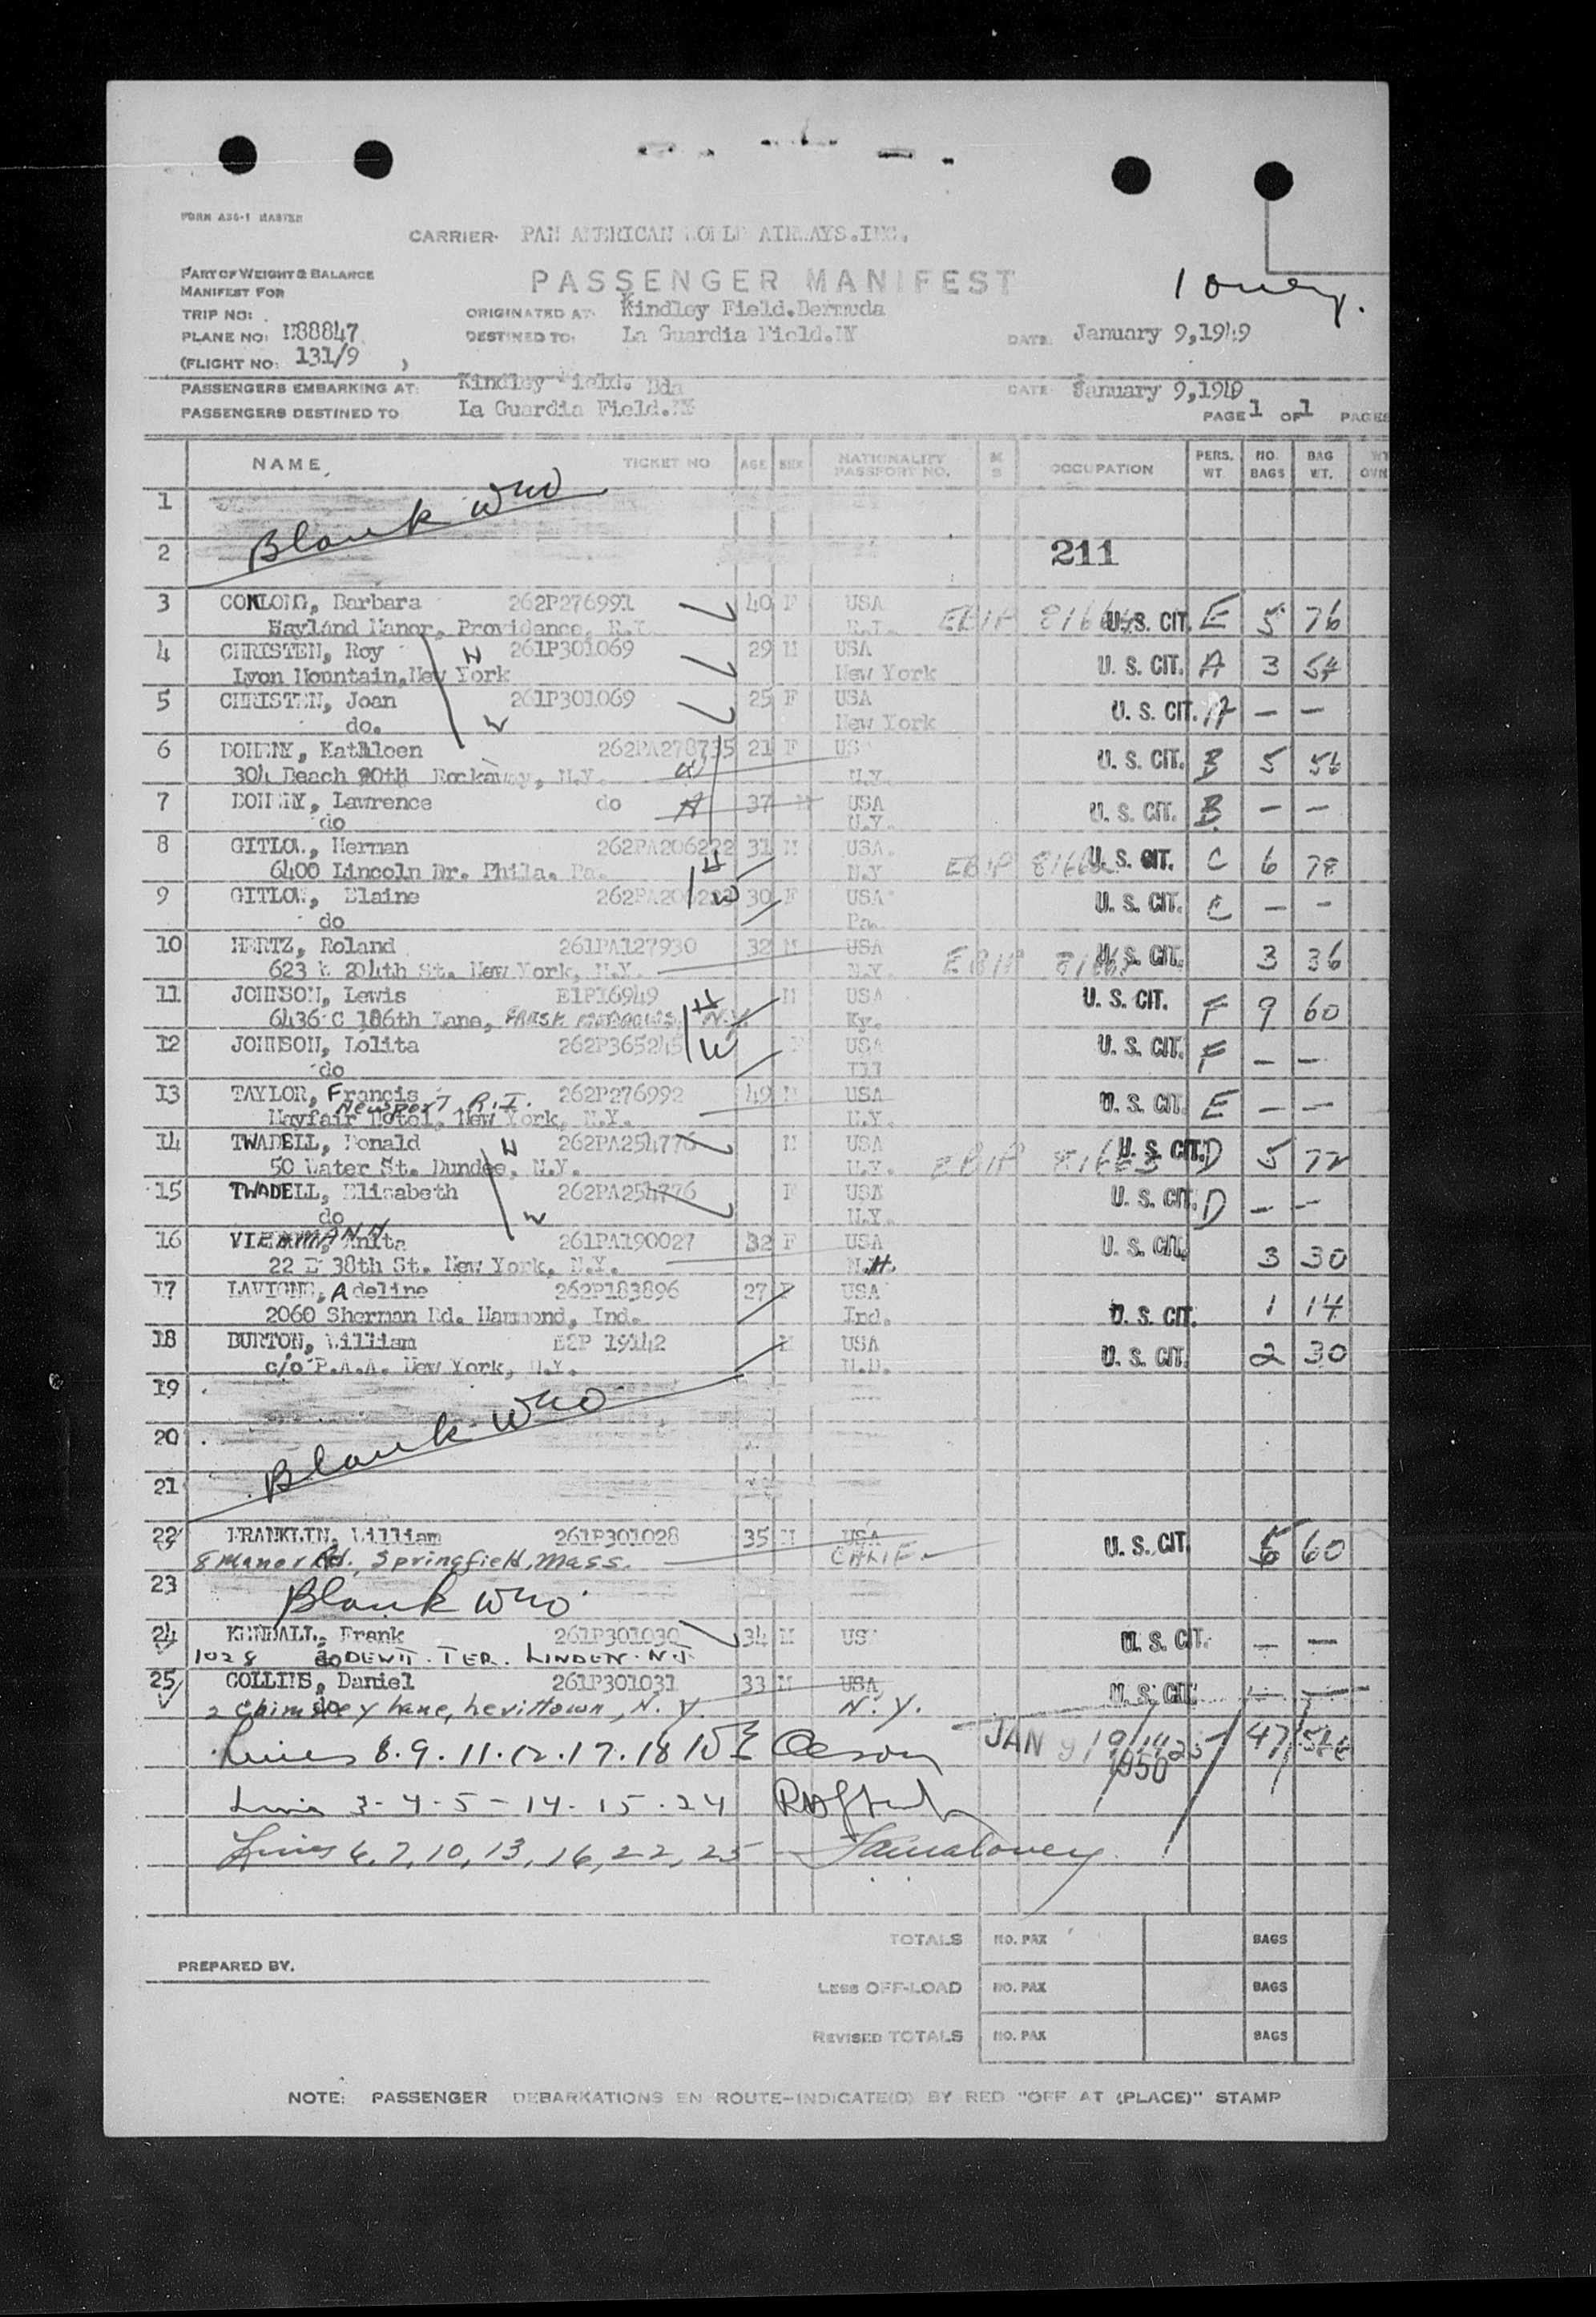 FORM ASG-1 MASTER
CARRIER- PAN AMERICAN WORLD AIRWAYS.INC.
PART OF WEIGHT & BALANCE
MANIFEST FOR
PASSENGER MANIFEST
TRIP NO:
ORIGINATED AT: Kindley Field.Bermuda
PLANE NO: N88847
DESTINED TO: La Guardia Field.NY
DATE January 9,1949
(FLIGHT NO: 131/9 )
PASSENGERS EMBARKING AT: Kindley Field. Bda
DATE January 9,1949
PASSENGERS DESTINED TO La Guardia Field.NY
PAGE 1 OF 1 PAGES
NAME TICKET NO AGE SEX NATIONALITY PASSPORT NO. M S OCCUPATION PERS. WT. NO. BAGS BAG WT.
1 Blank who
2 211
3 CONLONG, Barbara 262P276991 40 F USA U. S. CIT. E 5 76
Hayland Manor, Providence, R.I. R.I.
4 CHRISTEN, Roy H 261P301069 29 M USA U. S. CIT. A 3 54
Lyon Mountain, New York New York
5 CHRISTEN, Joan W 261P301069 25 F USA U. S. CIT. A — —
do. New York
6 DOHENY, Kathleen 262PA278735 21 F US U. S. CIT. B 5 56
304 Beach 90th Rockaway, N.Y. W N.Y.
7 DOHENY, Lawrence do H 37 M USA U. S. CIT. B — —
do N.Y.
8 GITLOW, Herman 262PA206222 31 M USA. U. S. CIT. C 6 78
6400 Lincoln Dr. Phila. Pa. H N.Y
9 GITLOW, Elaine 262PA206223 30 F USA U. S. CIT. C — —
do W Pa.
10 HERTZ, Roland 261PA127930 32 M USA U. S. CIT. 3 36
623 W 204th St. New York, N.Y. N.Y.
11 JOHNSON, Lewis E1P16949 M USA U. S. CIT. F 9 60
6436 C 186th Lane, FRESH MEADOWS, N.Y. H Ky.
12 JOHNSON, Lolita 262P365245 W F USA U. S. CIT. F — —
do Ill
13 TAYLOR, Francis 262P276992 49 M USA U. S. CIT. E — —
Newsport R.I.
Mayfair Hotel, New York, N.Y. N.Y.
14 TWADELL, Donald H 262PA254776 M USA U. S. CIT. D 5 72
50 Water St. Dundee, N.Y. N.Y.
15 TWADELL, Elisabeth 262PA254776 F USA U. S. CIT. D — —
do W N.Y.
16 VIEMANN, Anita 261PA190027 32 F USA U. S. CIT. 3 30
22 E 38th St. New York, N.Y. N.H.
17 LAVIGNE, Adeline 262P183896 27 F USA 1 14
2060 Sherman Rd. Hammond, Ind. Ind. U. S. CIT.
18 BURTON, William E2P 19142 M USA U. S. CIT. 2 30
c/o P.A.A. New York, N.Y. N.D.
19
20 Blank who
21
22 FRANKLIN, William 261P301028 35 M USA U. S. CIT. 60
8 Manor Rd., Springfield, Mass. CALIF.
23 Blank who
24 KENDALL, Frank 261P301030 34 M US U. S. CIT. — —
1028 do DEWITT. TER. LINDEN. N.J.
25 COLLINS, Daniel 261P301031 33 M USA U. S. CIT. — —
2 Chimney Lane, Levittown, N.Y. N.Y.
Lines 8.9.11.12.17.18 JAN 9 1950 47
Lines 3-4-5-14-15-24
Lines 6,7,10,13,16,22,25
TOTALS NO. PAX BAGS
PREPARED BY.
LESS OFF-LOAD NO. PAX BAGS
REVISED TOTALS NO. PAX BAGS
NOTE: PASSENGER DEBARKATIONS EN ROUTE-INDICATE(D) BY RED "OFF AT (PLACE)" STAMP